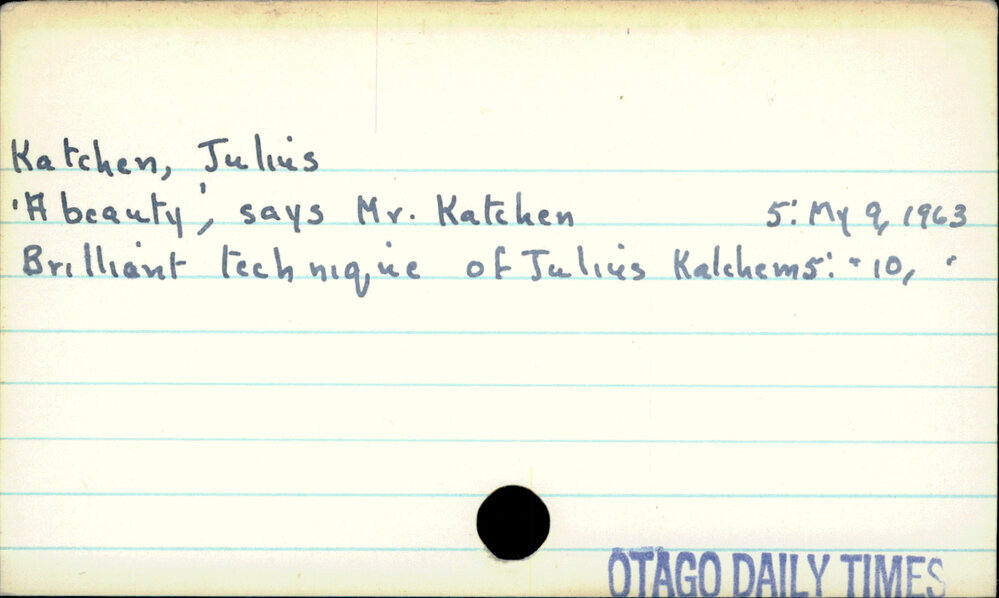 Katchen, Julius
'A beauty', says Mr. Katchen 5: My 9, 1963
Brilliant technique of Julius Katchem 5: " 10, "
OTAGO DAILY TIMES